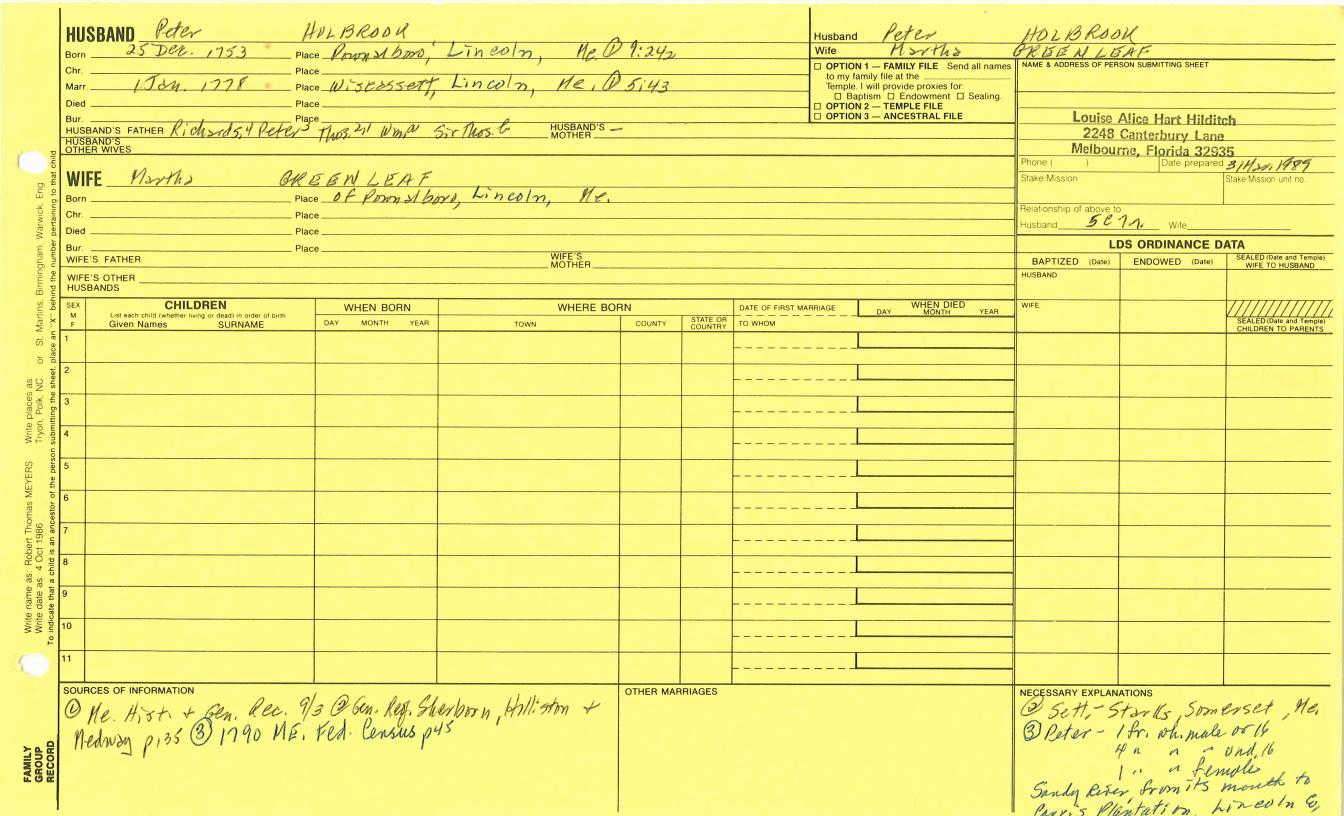 HUSBAND Peter HOLBROOK
Born 25 Dec. 1753 Place Pownalboro, Lincoln, Me. ① 9:242
Chr. Place
Marr. 1 Jan. 1778 Place Wiscassett, Lincoln, Me. ① 5:43
Died Place
Bur. Place
HUSBAND'S FATHER Richard5,4 Peter3 Thos.21 Wm. Sir Thos. HUSBAND'S MOTHER —
HUSBAND'S OTHER WIVES
WIFE Martha GREENLEAF
Born Place of Pownalboro, Lincoln, Me.
Chr. Place
Died Place
Bur. Place
WIFE'S FATHER WIFE'S MOTHER
WIFE'S OTHER HUSBANDS
Husband Peter HOLBROOK
Wife Martha GREENLEAF
☐ OPTION 1 — FAMILY FILE Send all names
to my family file at the
Temple. I will provide proxies for:
☐ Baptism ☐ Endowment ☐ Sealing.
☐ OPTION 2 — TEMPLE FILE
☐ OPTION 3 — ANCESTRAL FILE
NAME & ADDRESS OF PERSON SUBMITTING SHEET
Louise Alice Hart Hilditch
2248 Canterbury Lane
Melbourne, Florida 32935
Phone ( ) Date prepared 31 Mar. 1989
Stake Mission Stake/Mission unit no.
Relationship of above to
Husband 5C7r. Wife
LDS ORDINANCE DATA
BAPTIZED (Date) ENDOWED (Date) SEALED (Date and Temple) WIFE TO HUSBAND
HUSBAND
WIFE
SEALED (Date and Temple) CHILDREN TO PARENTS
SEX M F
CHILDREN
List each child (whether living or dead) in order of birth
Given Names SURNAME
WHEN BORN
DAY MONTH YEAR
WHERE BORN
TOWN COUNTY STATE OR COUNTRY
DATE OF FIRST MARRIAGE
TO WHOM
WHEN DIED
DAY MONTH YEAR
1
2
3
4
5
6
7
8
9
10
11
SOURCES OF INFORMATION
① Me. Hist. & Gen. Rec. 9/3 ② Gen. Reg. Sherborn, Holliston &
Medway p.135 ③ 1790 ME. Fed. Census p45
OTHER MARRIAGES
NECESSARY EXPLANATIONS
② Sett.- Starks, Somerset, Me.
③ Peter - 1 fr. wh. male ov 16
4 " " " und. 16
1 " " female
Sandy River, from its mouth to
Plantation, Lincoln Co,
Write name as: Robert Thomas MEYERS Write places as
Write date as: 4 Oct 1986 Tryon, Polk, NC or St. Martins, Birmingham, Warwick, Eng.
To indicate that a child is an ancestor of the person submitting the sheet, place an "X" behind the number pertaining to that child.
FAMILY
GROUP
RECORD